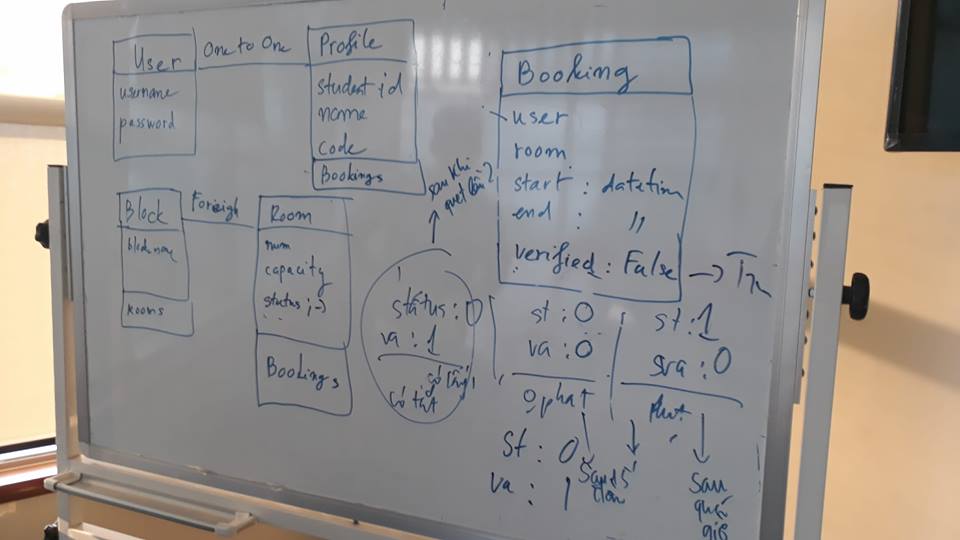 User
username
password
One to One
Profile
student id
name
code
Bookings
Block
block name
Rooms
Foreigh
Room
num
capacity
status :
Bookings
sau khi
quét lần 2
status : 0
va : 1
Booking
user
room
start : datetim
end : 〃
verified : False →
st : 0
va : 0
phat
st : 1
va : 0
phạt
St : 0
va : 1
sau
quá
giờ